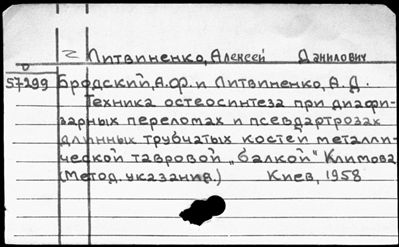 Литвиненко, Алексей Данилович
57299 Бродский, А.Ф. и Литвиненко, А.Д.
Техника остеосинтеза при диафи-
зарных переломах и псевдартрозах
длинных трубчатых костей металли-
ческой тавровой „балкой" Климова
(Метод. указания.) Киев, 1958